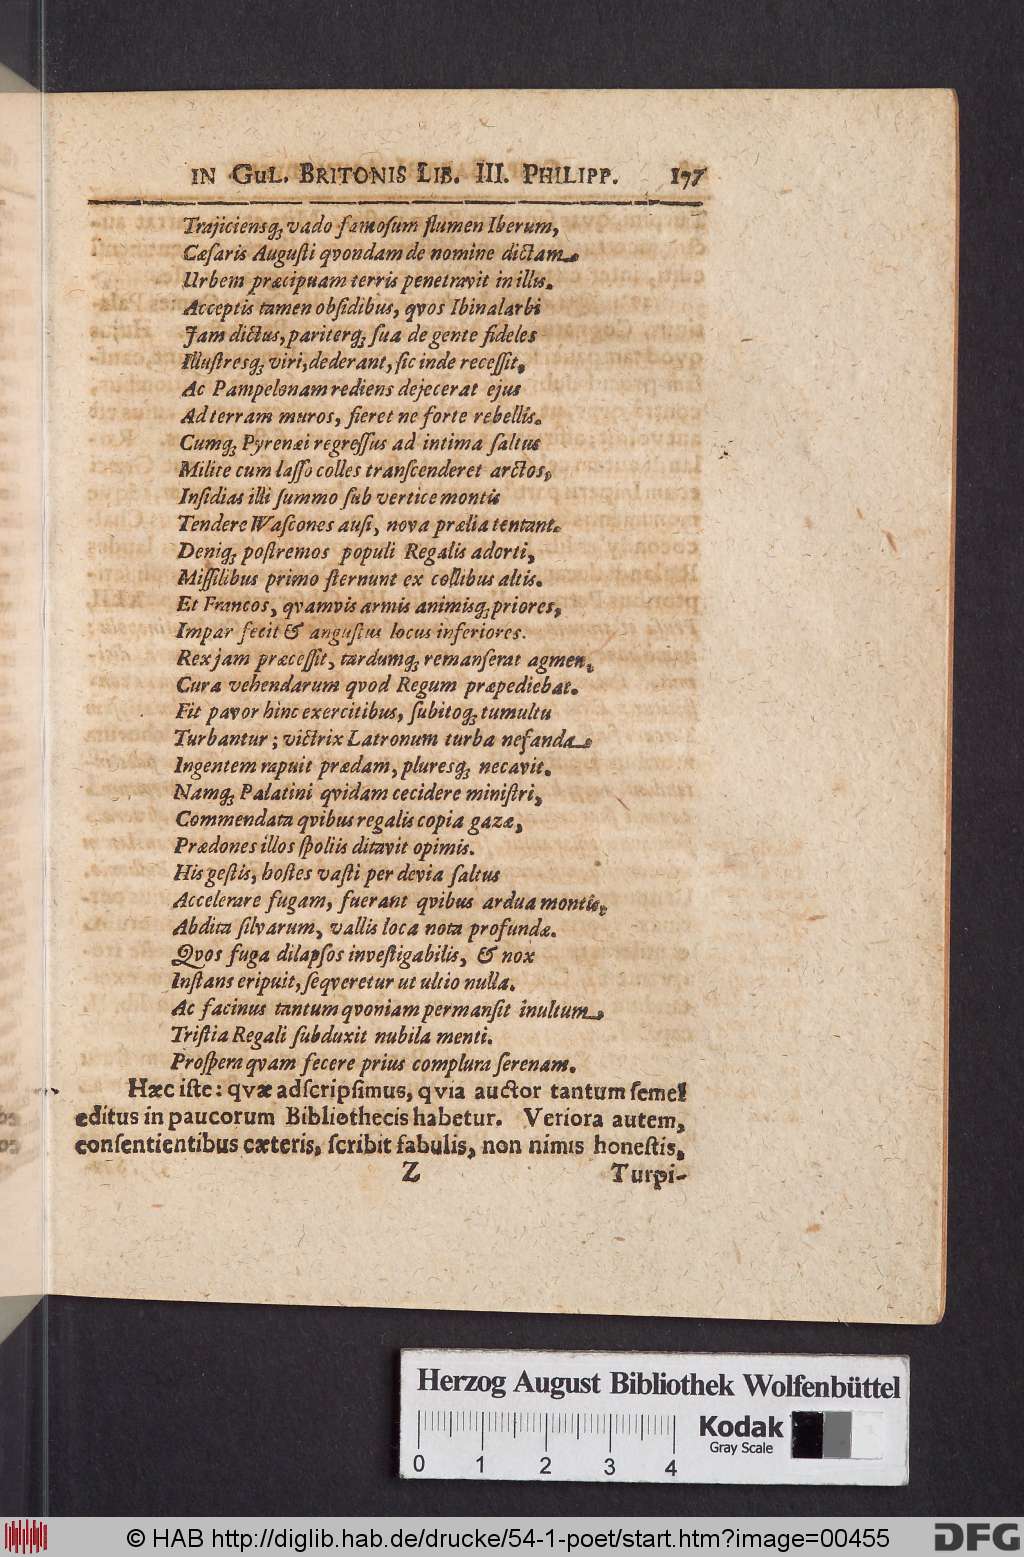 IN GUL. BRITONIS LIB. III. PHILIPP. 177
Trajiciensq; vado famosum flumen Iberum,
Cæsaris Augusti qvondam de nomine dictam
Urbem præcipuam terris penetravit in illis.
Acceptis tamen obsidibus, qvos Ibinalarbi
Jam dictus, pariterq; sua de gente fideles
Illustresq; viri, dederant, sic inde recessit,
Ac Pampelonam rediens dejecerat ejus
Ad terram muros, fieret ne forte rebellis.
Cumq; Pyrenæi regressus ad intima saltus
Milite cum lasso colles transcenderet arctos,
Insidias illi summo sub vertice montis
Tendere Wascones ausi, nova prælia tentant.
Deniq; postremos populi Regalis adorti,
Missilibus primo sternunt ex collibus altis.
Et Francos, qvamvis armis animisq; priores,
Impar fecit & angustus locus inferiores.
Rex jam præcessit, tardumq; remanserat agmen,
Cura vehendarum qvod Regum præpediebat.
Fit pavor hinc exercitibus, subitoq; tumultu
Turbantur; victrix Latronum turba nefanda
Ingentem rapuit prædam, pluresq; necavit.
Namq; Palatini qvidam cecidere ministri,
Commendata qvibus regalis copia gazæ,
Prædones illos spoliis ditavit opimis.
His gestis, hostes vasti per devia saltus
Accelerare fugam, fuerant qvibus ardua montis,
Abdita silvarum, vallis loca nota profundæ.
Qvos fuga dilapsos investigabilis, & nox
Instans eripuit, seqveretur ut ultio nulla.
Ac facinus tantum qvoniam permansit inultum
Tristia Regali subduxit nubila menti.
Prospera qvam fecere prius complura serenam.
Hæc iste: qvæ adscripsimus, qvia auctor tantum semel
editus in paucorum Bibliothecis habetur. Veriora autem,
consentientibus cæteris, scribit fabulis, non nimis honestis,
Z Turpi-
Herzog August Bibliothek Wolfenbüttel
Kodak
Gray Scale
0 1 2 3 4
© HAB http://diglib.hab.de/drucke/54-1-poet/start.htm?image=00455
DFG